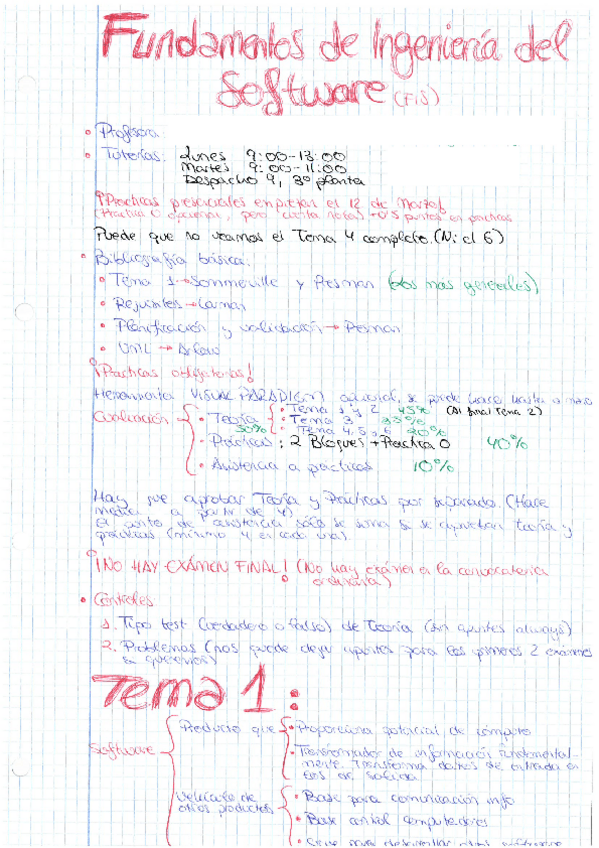 Fundamentos de Ingeniería del
Software (FIS)
• Profesora:
• Tutorías: Lunes 9:00-13:00
Martes 9:00-11:00
Despacho 9, 3ª planta
¡Prácticas presenciales empiezan el 12 de Marzo!
(Práctica 0 opcional, pero cuenta notas +0'5 puntos en prácticas
Puede que no veamos el Tema 4 completo. (Ni el 6)
• Bibliografía básica:
• Tema 1 → Sommerville y Presman (los más generales)
• Requisitos → Larman
• Planificación y validación → Presman
• UML → Arlow
¡Prácticas obligatorias!
Herramienta VISUAL PARADIGM se puede usar
Evaluación
• Teoría 50%
• Tema 1 y 2 45% (al final Tema 2)
• Tema 3
• Tema 4, 5, 6 20%
• Prácticas: 2 Bloques + Práctica 0 40%
• Asistencia a prácticas 10%
Hay que aprobar Teoría y Prácticas por separado. (Hace
media a partir de 4)
El punto de asistencia sólo se suma si se aprueban teoría y
prácticas (mínimo 4 en cada una).
¡NO HAY EXÁMEN FINAL! (No hay exámen en la convocatoria
ordinaria)
• Controles:
1. Tipo test (verdadero o falso) de Teoría (sin apuntes always)
2. Problemas (nos puede dejar apuntes para los primeros 2 exámenes
si queremos)
Tema 1:
Software
Producto que
• Proporciona potencial de cómputo
• Transformador de información fundamental-
mente. Transforma datos de entrada en
los de salida
Vehículo de
otros productos
• Base para comunicación info
• Base control computadores
• Sirve para desarrollar otros software